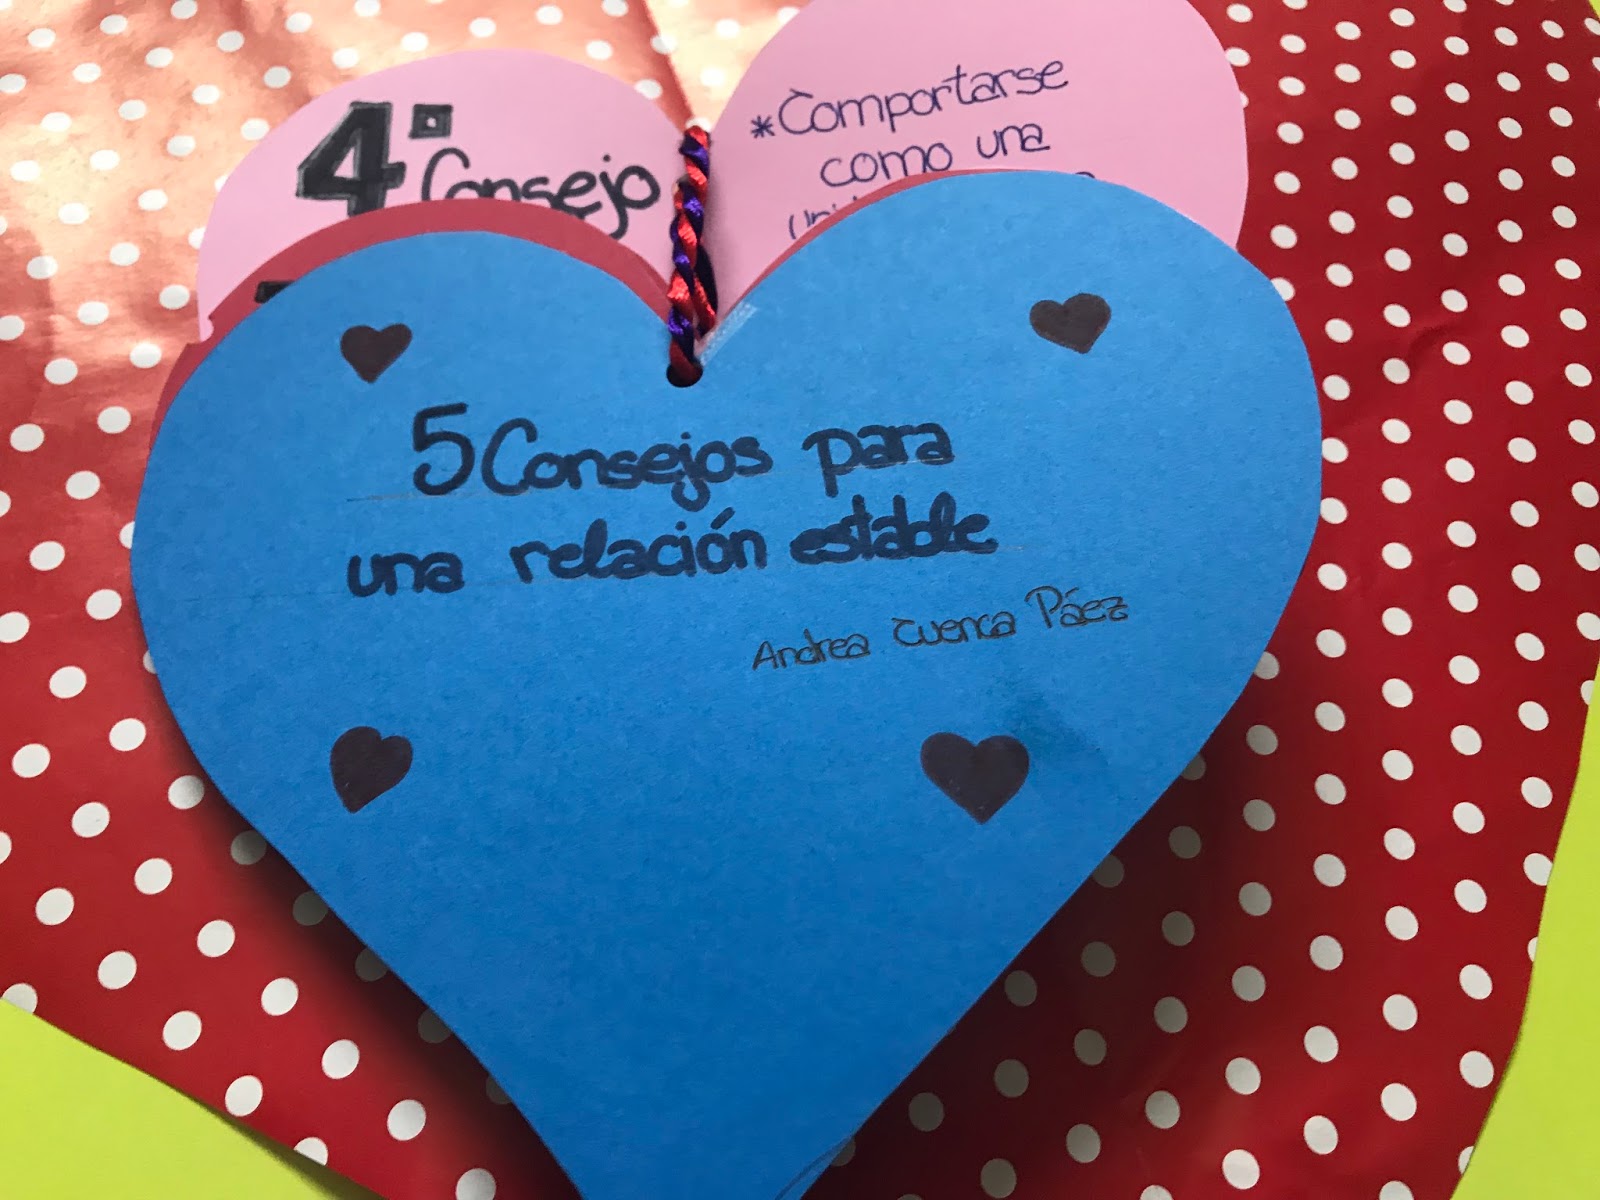 4º
Consejo
*Comportarse
como una
5 Consejos para
una relación estable
Andrea Cuenca Páez